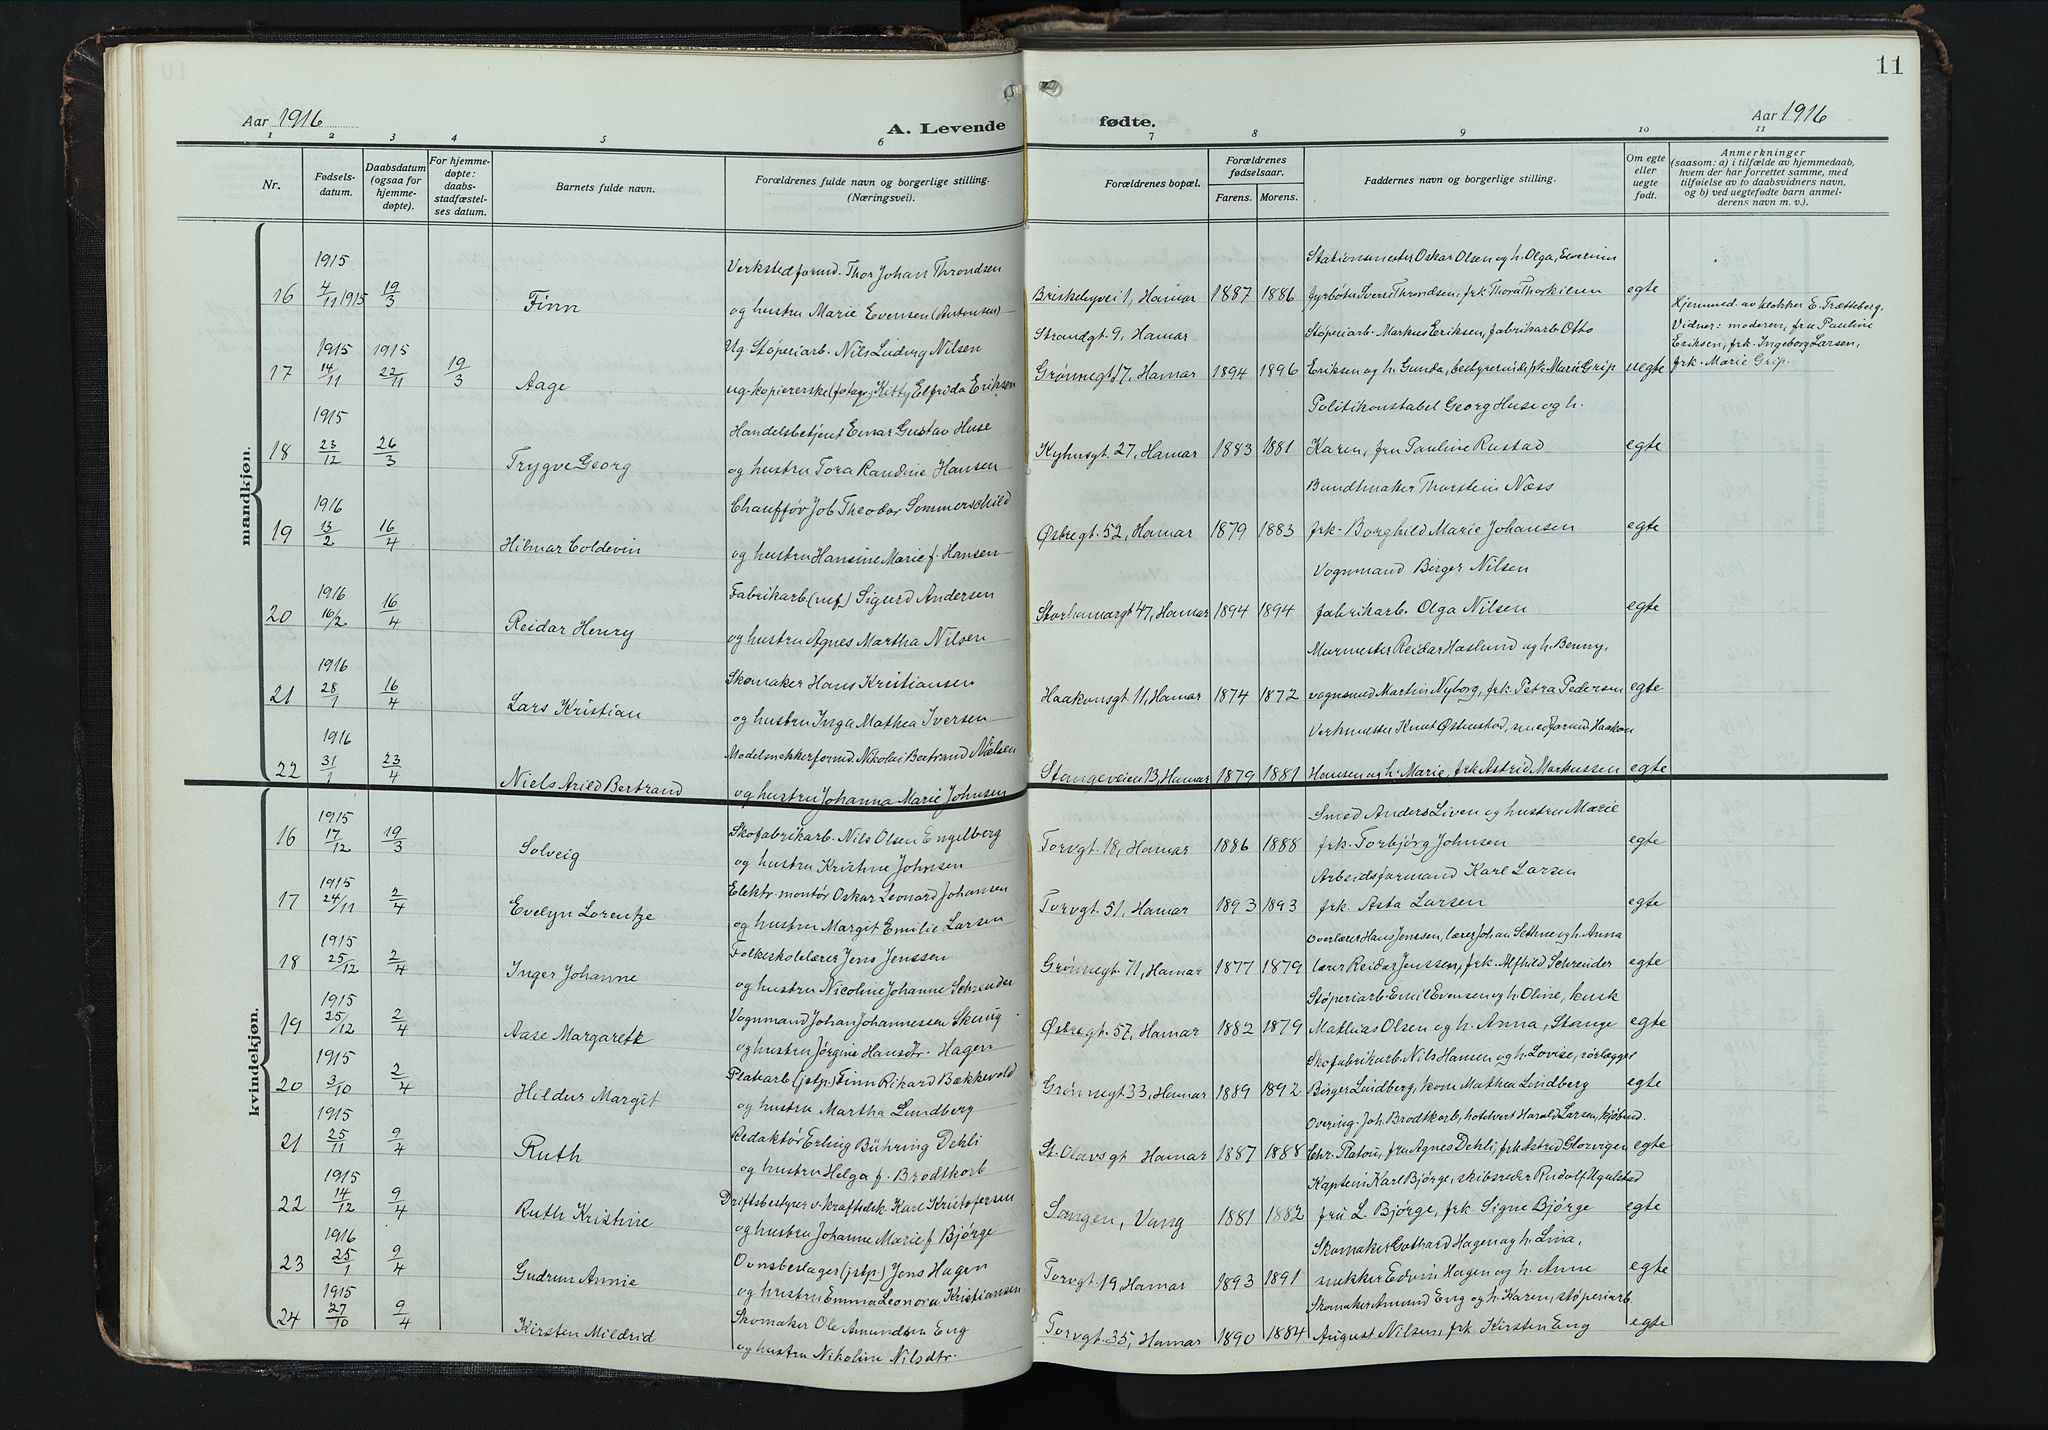 11
Aar 1916 A. Levende
fødte. Aar 1916
1 2 3 4 5 6 7 8 9 10 11
Nr.
Fødsels-
datum.
Daabsdatum
(ogsaa for
hjemme-
døpte).
For hjemme-
døpte:
daabs-
stadfæstel-
ses datum.
Barnets fulde navn.
Forældrenes fulde navn og borgerlige stilling.
(Næringsvei).
Forældrenes bopæl.
Forældrenes
fødselsaar.
Farens. Morens.
Faddernes navn og borgerlige stilling.
Om egte
eller
uegte
født.
Anmerkninger
(saasom: a) i tilfælde av hjemmedaab,
hvem der har forrettet samme, med
tilføielse av to daabsvidners navn,
og b) ved uegtefødte barn anmel-
derens navn m. v.).
mandkjøn.
1915
16 4/11 1915 19/3 Finn
Verkstedformd. Thor Johan Throndsen
og hustru Marie Evensen (Antonsen)
Briskebyvei 1, Hamar 1887 1886
Stationsmester Oskar Olsen og h. Olga, Evelinn
fyrbøter Sverre Throndsen, frk Thora Thorkilsen egte
1915 1915
17 14/11 22/11 19/3 Aage
Ug. Støperiarb. Nils Ludvig Nilsen
ug. kopiererske (fotogr.) Kitty Elfrida Eriksen
Strandgt 9, Hamar
Grønnegt 17, Hamar 1894 1896
Støperiarb. Markus Eriksen, fabrikarb Otto
Eriksen og h. Gunda, bestyrerinde frk Marie Grip uegte
Hjemmed. av klokker E. Trætteberg.
Vidner: moderen, fru Pauline
Eriksen, frk. Ingeborg Larsen,
frk. Marie Grip.
1915
18 23/12 26/3 Trygve Georg
Handelsbetjent Einar Gustav Huse
og hustru Tora Randine Hansen
Kyhnsgt. 27, Hamar 1883 1881
Politikonstabel Georg Huse og h.
Karen, fru Pauline Rustad egte
1916
19 13/2 16/4 Hilmar Coldevin
Chauffør Job Theodor Sommerschild
og hustru Hansine Marie f. Hansen
Østregt. 52, Hamar 1879 1883
Bundtmaker Thorstein Næss
frk. Borghild Marie Johansen egte
1916
20 16/2 16/4 Reidar Henry
Fabrikarb (mf) Sigurd Andersen
og hustru Agnes Martha Nilsen
Storhamargt 47, Hamar 1894 1894
Vognmand Birger Nilsen
fabrikarb. Olga Nilsen egte
1916
21 28/1 16/4 Lars Kristian
Skomaker Hans Kristiansen
og hustru Inga Mathea Iversen
Haakonsgt 11, Hamar 1874 1872
Murmester Reidar Haslund og h. Benny,
vognsmed Martin Nyborg, frk. Petra Pedersen egte
1916
22 31/1 23/4 Niels Arild Bertrand
Modelsnekkerformd. Nikolai Bertrand Nielsen
og hustru Johanna Marie Johnsen
Stangeveien 13, Hamar 1879 1881
Verkmester Knut Østmestad, smedformd Haakon
Hansen og h. Marie, frk Astrid Markussen egte
kvindekjøn.
1915
16 17/12 19/3 Solveig
Skofabrikarb. Nils Olsen Engelberg
og hustru Kristine Johnsen
Torvgt. 18, Hamar 1886 1888
Smed Anders Liven og hustru Marie
frk. Torbjørg Johnsen egte
1915
17 24/11 2/4 Evelyn Lorentze
Elektr. montør Oskar Leonard Johansen
og hustru Margit Emilie Larsen
Torvgt. 51, Hamar 1893 1893
Arbeidsformand Karl Larsen
frk. Asta Larsen egte
1915
18 25/12 2/4 Inger Johanne
Folkeskolelærer Jens Jenssen
og hustru Nicoline Johanne Schreuder
Grønnegt. 71, Hamar 1877 1879
Overlærer Hans Jenssen, lærer Johan Sethne og h. Anna
lærer Reidar Jenssen, frk. Alfhild Schreuder egte
1915
19 25/12 2/4 Aase Margarethe
Vognmand Johan Johannessen Skaug
og hustru Jørgine Hansdtr. Hagen
Østregt. 57, Hamar 1882 1879
Støperiarb Emil Evensen og h. Oline, kusk
Mathias Olsen og h. Anna, Stange egte
1915
20 3/10 2/4 Hildur Margit
Platearb (jstp) Finn Rikard Bækkevold
og hustru Martha Lundberg
Grønnegt 33, Hamar 1889 1892
Skofabrikarb. Nils Hansen og h. Lovise, rørlægger
Birger Lindberg, kone Mathea Lindberg egte
1915
21 25/11 9/4 Ruth
Redaktør Erling Bühring Dehli
og hustru Helga f. Brodtkorb
St. Olavsgt Hamar 1887 1888
Overing. Joh. Brodtkorb, hotelvert Harald Larsen, kjøbmd.
Chr. Platou, fru Agnes Dehli, frk Astrid Glorvigen egte
1915
22 14/12 9/4 Ruth Kristine
Driftsbestyrer v. kraftselsk. Karl Kristofersen
og hustru Johanne Marie f Bjørge
Sangen, Vang 1881 1882
Kaptein Karl Bjørge, skibsreder Rudolf Ugelstad
fru L. Bjørge, frk. Signe Bjørge egte
1916
23 25/1 9/4 Gudrun Annie
Ovnsbeslager (jstp) Jens Hagen
og hustru Emma Leonora Kristiansen
Torvgt. 19, Hamar 1893 1891
Skomaker Gothard Hagen og h. Lina,
snekker Edvin Hagen og h. Anne egte
1915
24 27/10 9/4 Kirsten Mildrid
Skomaker Ole Amundsen Eng
og hustru Nikoline Nilsdtr.
Torvgt. 35, Hamar 1890 1884
Skomaker Amund Eng og h. Karen, støperiarb.
August Nilsen, frk. Kirsten Eng egte